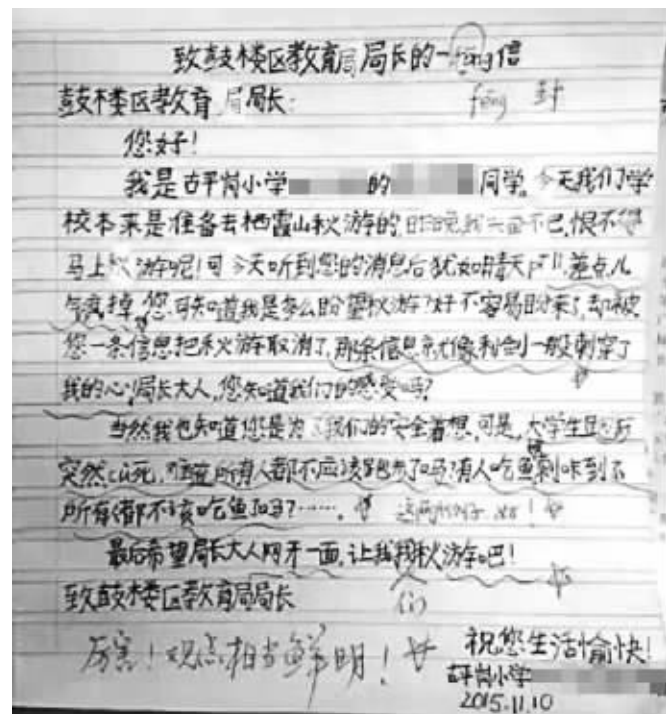 致鼓楼区教育局局长的一fēng信
鼓楼区教育局局长: fēng 封
您好!
我是古平岗小学 的 同学,今天我们学
校本来是准备去栖霞山秋游的,昨晚我兴奋不已,恨不得
马上秋游呢!可今天听到您的消息后犹如晴天pī lì,差点儿
气疯掉,您可知道我是多么盼望秋游?好不容易盼来了,却被
您一条信息把秋游取消了,那条信息就像利剑一般刺穿了
我的心!局长大人,您知道我们的感受吗?
当然我也知道您是为了我们的安全着想,可是,大学生跑步
突然cù死,难道所有人都不应该跑步了吗?有人吃鱼刺卡到了
所有人都不该吃鱼了吗?……。 这两个例子
最后希望局长大人网开一面,让我们秋游吧!
致鼓楼区教育局局长 们
厉害!观点相当鲜明! 祝您生活愉快!
古平岗小学
2015.11.10